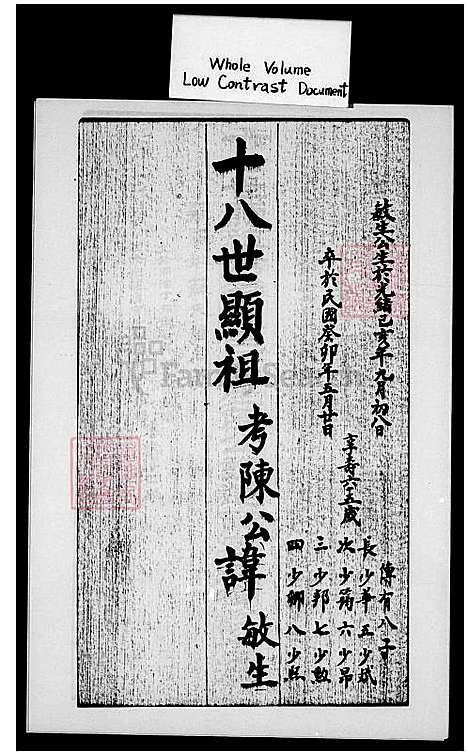 Whole Volume
Low Contrast Document
敏生公生於光緒己亥年九月初八日
卒於民國癸卯年五月廿日
享壽六十五歲
傳有八子
長少華 五少斌
次少蒟 六少昂
三少邦 七少勲
四少卿 八少熙
十八世顯祖考陳公諱敏生